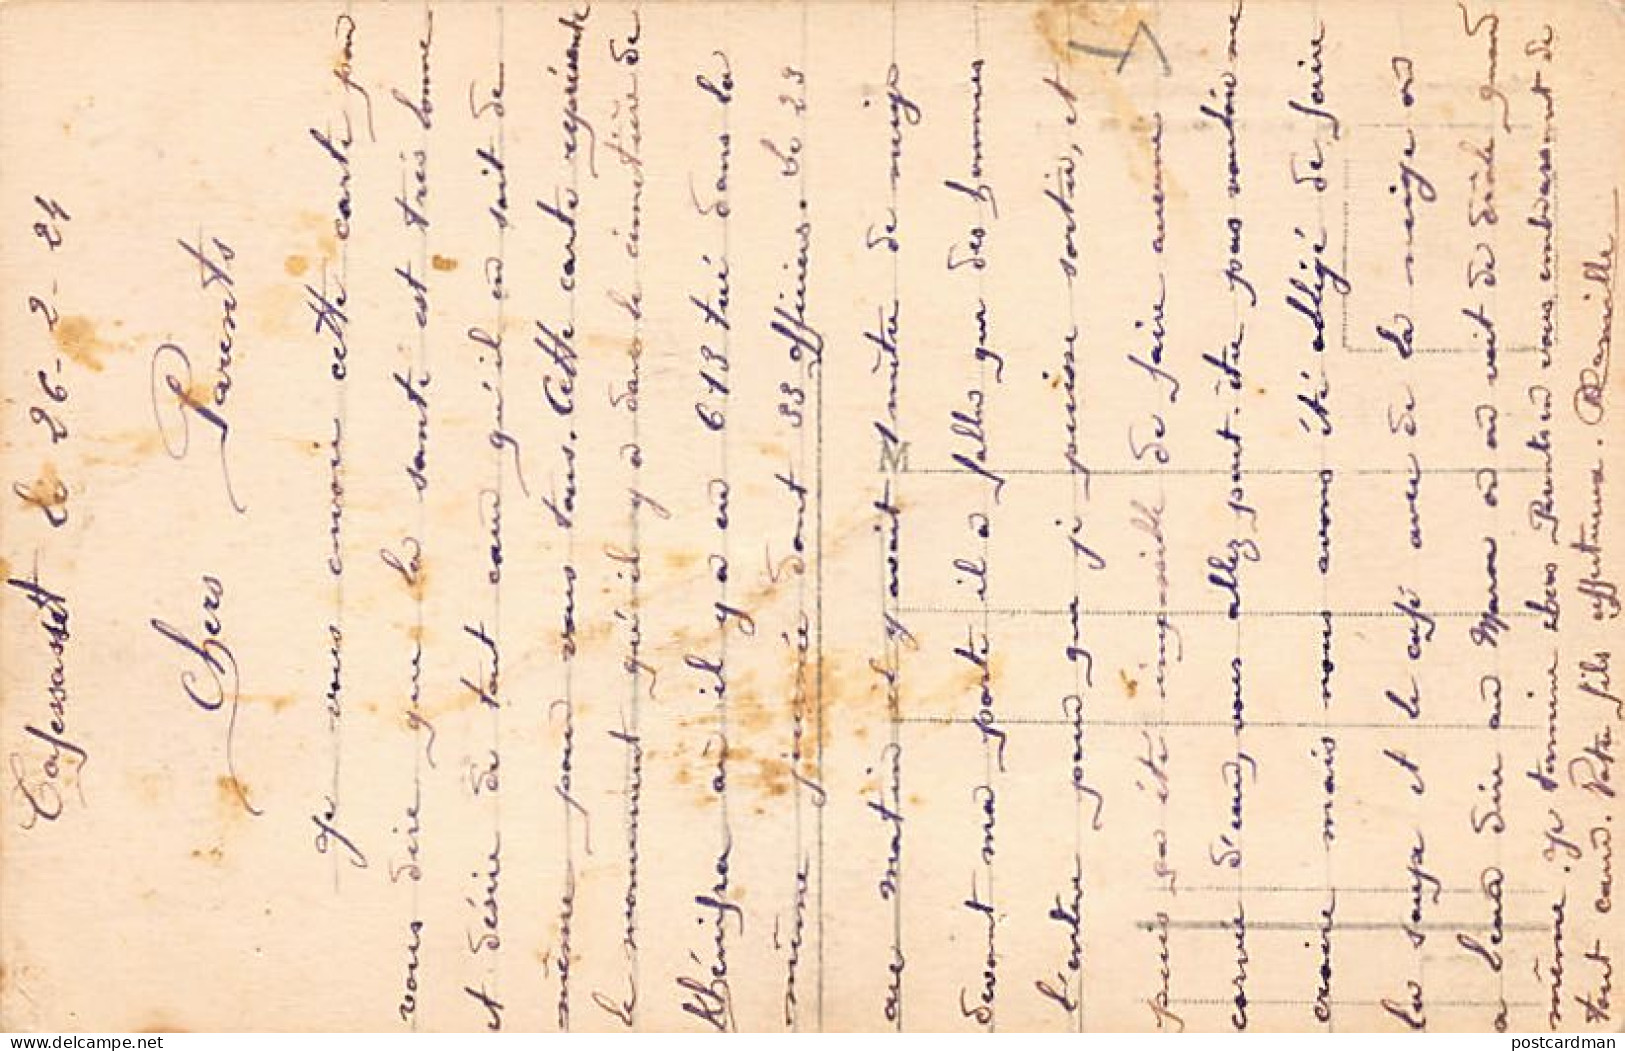 Cafessasset le 26-2-24
Chers Parents
Je vous envoie cette carte pour
vous dire que la santé est très bonne
et désire de tout cœur qu'il en soit de
même pour vous tous. Cette carte représente
le monument qu'il y a dans le cimetière de
Khénifra où il y a eu 613 tué dans la
même journée dont 33 officiers. Le 23
au matin il y avait 1 mètre de neige
devant ma porte il a fallu que des hommes
l'enlève pour que je puisse sortir, et
puis ça été impossible de faire aucune
corvée d'eau, vous allez peut-être pas vouloir me
croire mais nous avons été obligé de faire
la soupe et le café avec de la neige on
a beau dire au Maroc on voit de drôle quand
même. Je termine chers Parents en vous embrassant de
tout cœur. Votre fils affectueux. Camille
postcardman